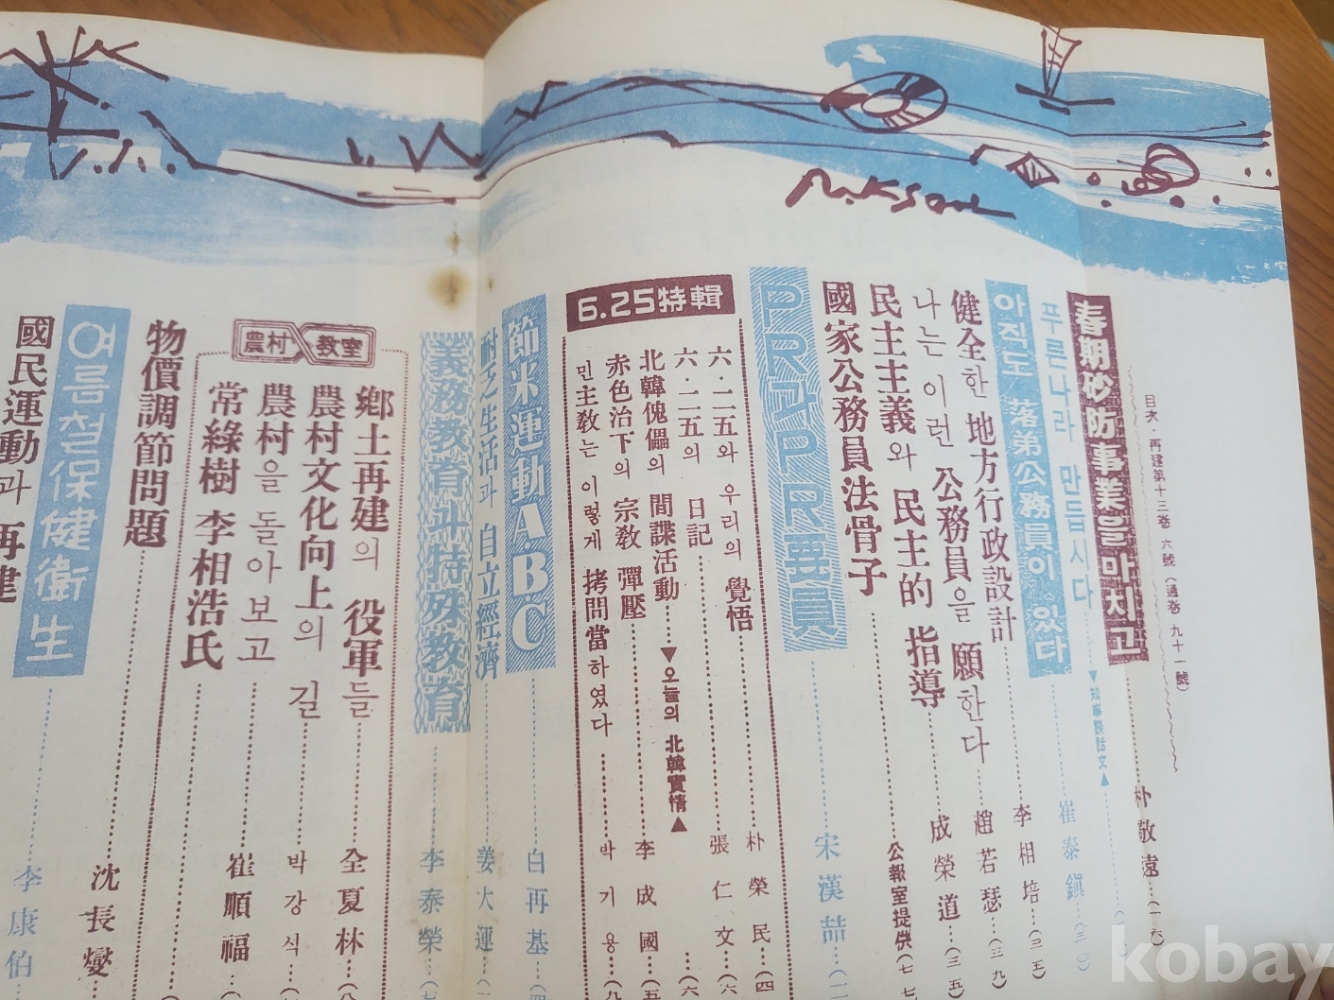 目次·再建第十三卷 六號(通卷 九十一號)
春期砂防事業을마치고 朴敬遠(一六)
푸른나라 만듭시다 崔泰鎭
▼知事談話文▲
아직도 落第公務員이 있다 李相培(二五
健全한 地方行政設計 趙若瑟(三九
나는 이런 公務員을 願한다 成榮道(三五
民主主義와 民主的 指導 公報室提供(七七
國家公務員法骨子
PR과PR要員 宋漢喆
6.25特輯
六·二五와 우리의 覺悟 朴榮民(四
六·二五의 日記 張仁文(六
北韓傀儡의 間諜活動 ▼오늘의 北韓實情▲
赤色治下의 宗敎 彈壓 李成國(五
민主敎는 이렇게 拷問當하였다 박기용(八
節米運動A.B.C 白再基(四
耐乏生活과 自立經濟 姜大運
義務敎育斗特殊敎育 李泰榮
農村敎室
鄕土再建의 役軍들 全夏林(八
農村文化向上의 길 박강식
農村을 돌아보고 崔順福
常綠樹 李相浩氏
物價調節問題 沈長燮
여름철保健衛生 李康伯
國民運動과 再建
kobay